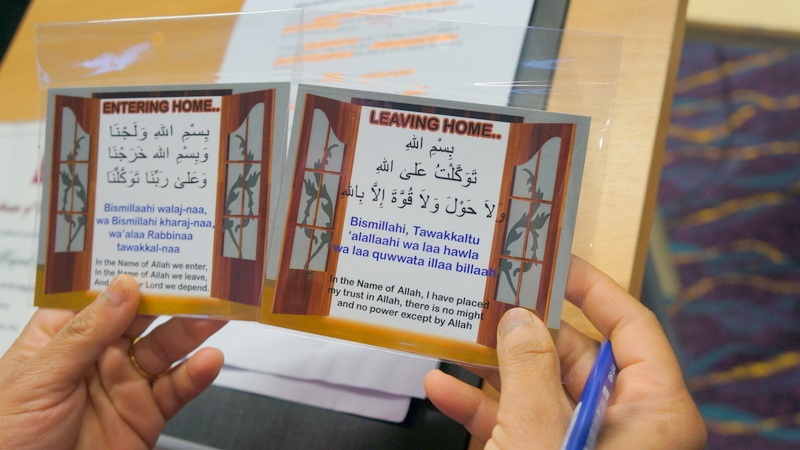 ENTERING HOME..
بِسْمِ اللهِ وَلَجْنَا
وَبِسْمِ اللهِ خَرَجْنَا
وَعَلىٰ رَبِّنَا تَوَكَّلْنَا
Bismillaahi walaj-naa,
wa Bismillahi kharaj-naa,
wa'alaa Rabbinaa
tawakkal-naa
In the Name of Allah we enter,
In the Name of Allah we leave,
And Lord we depend.
LEAVING HOME..
بِسْمِ اللهِ
تَوَكَّلْتُ عَلىَ اللهِ
وَلاَ حَوْلَ وَلاَ قُوَّةَ إِلاَّ بِاللهِ
Bismillahi, Tawakkaltu
'alallaahi wa laa hawla
wa laa quwwata illaa billaah
In the Name of Allah, I have placed
my trust in Allah, there is no might
and no power except by Allah